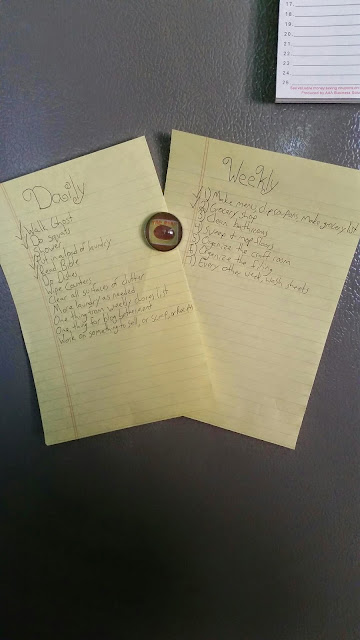 Daily
Walk Ghost
Do squats
Shower
Put in a load of laundry
Read Bible
Do Dishes
Wipe Counters
Clear all surfaces of clutter
More laundry as needed
One thing from weekly chores list
One thing for blog betterment
Work on something to sell, or
Weekly
1) Make menu, clip coupons, make grocery list
2) Grocery shop
3) Clean bathrooms
4) Sweep + mop floors
5) Organize craft room
6) Organize the
7) Every other week, wash sheets
17.
24
25